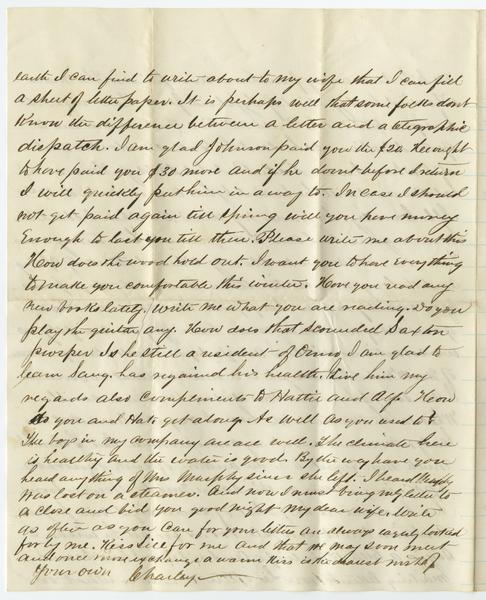 earth I can find to write about to my wife that I can fill
a sheet of letter paper. It is perhaps well that some folks dont
know the difference between a letter and a telegraphic
dispatch. I am glad Johnson paid you the $20. He ought
to have paid you $30 more and if he doesnt before I return
I will quickly put him in a way to. In case I should
not get paid again till spring will you have money
Enough to last you till then. Please write me about this
How does the wood hold out. I want you to have Everything
to make you comfortable this winter. Have you read any
new books lately. Write me what you are reading. Do you
play the guitar any. How does that scoundrel Saxton
prosper Is he still a resident of Orono, I am glad to
learn Sang. has regained his health. Give him my
regards also Compliments to Hattie and Alf. How
do you and Hate get along. As well as you used to
The boys in my company are all well. The climate here
is healthy and the water is good. By the way have you
heard anything of Mrs Murphy since she left. I heard Murphy
was lost on a steamer. And now I must bring my letter to
a close and bid you good night my dear wife. Write
as often as you can for your letters are always eagerly looked
for by me. Kiss Sice for me and that we may soon meet
and once more exchange a warm kiss is the dearest wish of
Your own Charley